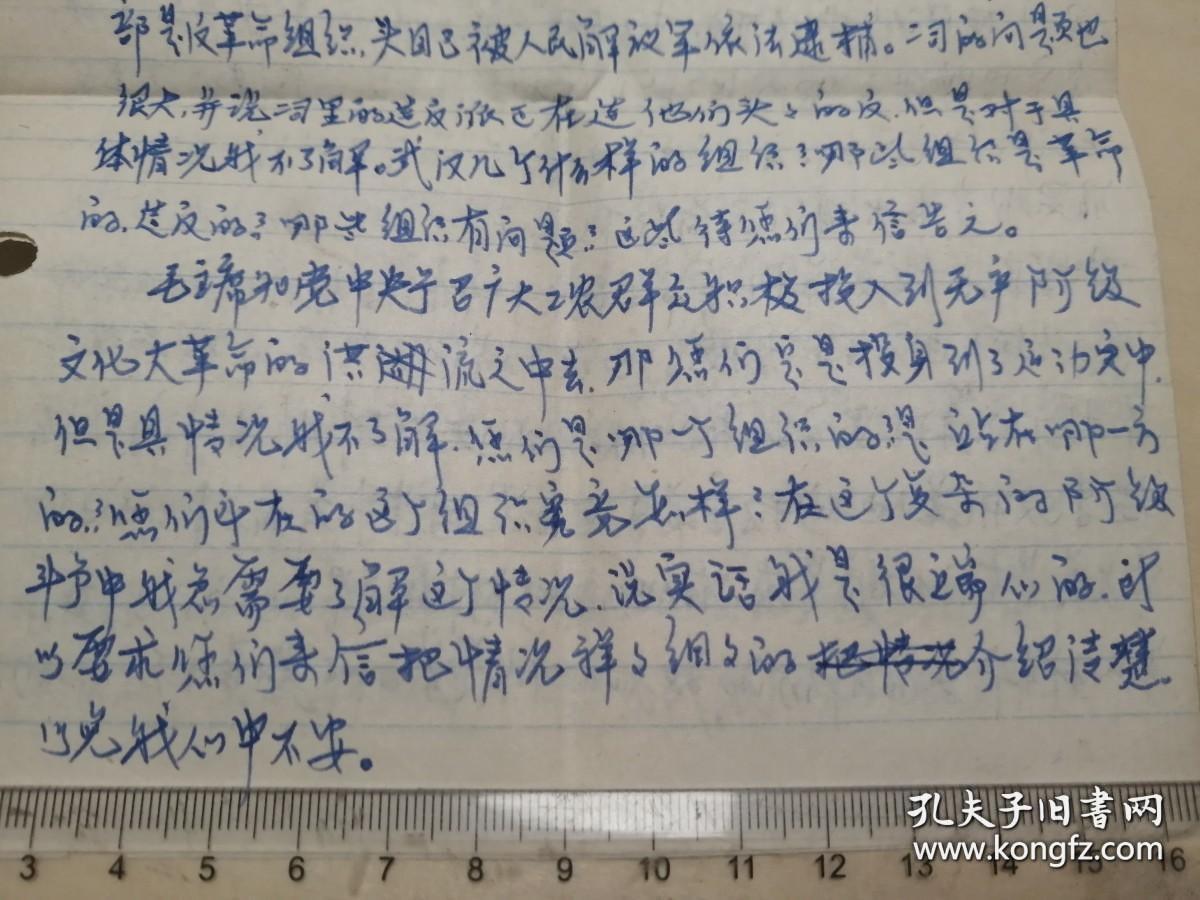 部是反革命组织,头目已被人民解放军依法逮捕。二司的问题也
很大,并说二司里的造反派正在造他们头头的反,但是对于具
体情况我不了解。武汉几个什么样的组织?哪些组织是革命
的,造反的?哪些组织有问题?这些待您们来信告之。
毛主席和党中央号召广大工农群众积极投入到无产阶级
文化大革命的洪流之中去,那您们只是投身到了运动之中,
但是具情况我不了解,您们是哪一个组织的?是站在哪一方
的?您们所在的这个组织究竟怎样?在这个复杂的阶级
斗争中我急需要了解这个情况,说实话我是很
以要求您们来信把情况详々细々的介绍清楚。
以免我心中不安。
3 4 5 6 7 8 9 10 11 12 13 14 15 16
孔夫子旧书网
www.kongfz.com